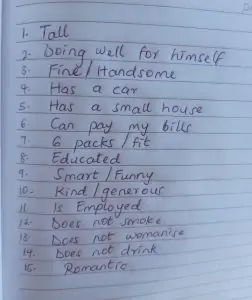 1. Tall
2. Doing well for himself
3. Fine / Handsome
4. Has a car
5. Has a small house
6 Can pay my bills
7. 6 packs / fit
8. Educated
9. Smart / Funny
10. Kind / generous
11 Is Employed
12. Does not smoke
13. Does not womanise
14. Does not drink
15. Romantic